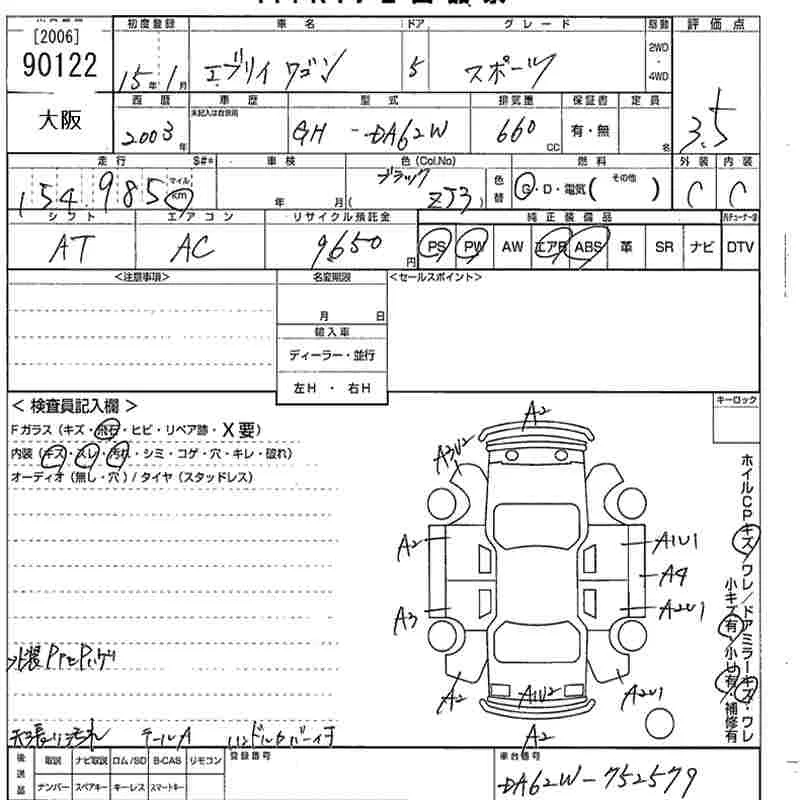 [2006]
90122
大阪
初度登録 車名 ドア グレード 駆動 評価点
15年1月 エブリィワゴン 5 スポーツ 2WD・4WD 3.5
西暦 車歴 型式 排気量 保証書 定員
2003年 未記入は自家用 GH-DA62W 660cc 有・無 名
走行 S#* 車検 色(Col.No) 燃料 外装 内装
154,985 マイル km 年 月 ブラック ( ZJ3 ) 色替 G・D・電気( その他 ) C C
シフト エアコン リサイクル預託金 純正装備品
AT AC 9650円 PS PW AW エアB ABS 革 SR ナビ DTV
<注意事項> 名変期限 <セールスポイント>
月 日
輸入車
ディーラー・並行
左H ・ 右H
<検査員記入欄> キーロック
Fガラス(キズ・飛石・ヒビ・リペア跡・X要)
内装(キズ・スレ・汚れ・シミ・コゲ・穴・キレ・破れ)
オーディオ(無し・穴)/タイヤ(スタッドレス)
A2
A3U2
A2 A1U1
A4
A3 A2U1
A2 A1U2 A2U1
A2
ホイルCPキズ/ワレ/ドアミラーキズ・ワレ
小キズ有・小U有・補修有
天張り汚れ テールA ハンドルカバー付
後送品 取説 ナビ取説 ロム/SD B-CAS リモコン 登録番号 車台番号
ナンバー スペアキー キーレス スマートキー DA62W-752579